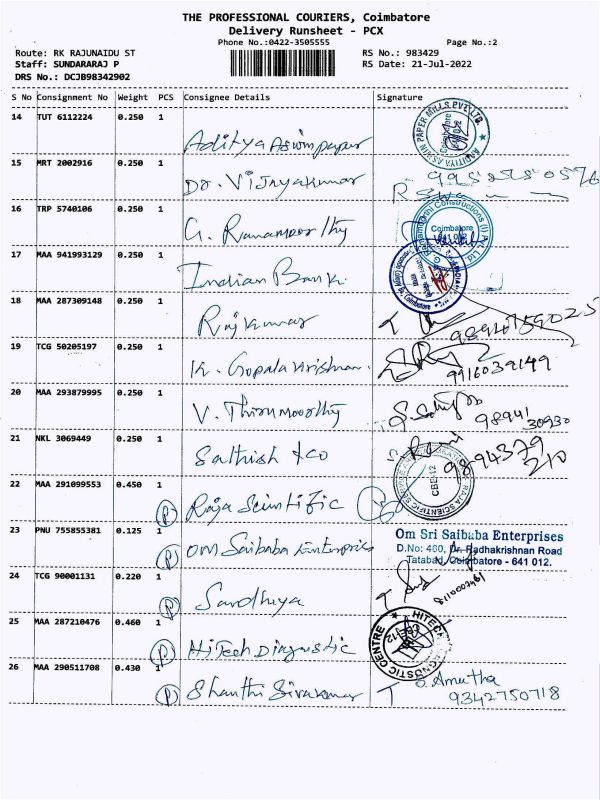 THE PROFESSIONAL COURIERS, Coimbatore
Delivery Runsheet - PCX
Phone No.:0422-3505555
Page No.:2
Route: RK RAJUNAIDU ST
RS No.: 983429
Staff: SUNDARARAJ P
RS Date: 21-Jul-2022
DRS No.: DCJB98342902
S No Consignment No Weight PCS Consignee Details Signature
14 TUT 6112224 0.250 1
Aditya Aswin paper
ADITIYA ASHIN PAPER MILLS PVT LTD.
Coimbatore
15 MRT 2002916 0.250 1
Dr. Vijayakumar
16 TRP 5740106 0.250 1
G. Ramamoorthy
Constructions (I) P. Ltd
Coimbatore
17 MAA 941993129 0.250 1
Indian Bank
18 MAA 287309148 0.250 1
Rajkumar
T
19 TCG 50205197 0.250 1
K. Gopalakrishnan
9916039149
20 MAA 293879995 0.250 1
V. Thirumoorthy
98941
30930
21 NKL 3069449 0.250 1
Sathish & co
9894379
210
22 MAA 291099553 0.450 1
(P) Raja Scientific
CBE-12
23 PNU 755855381 0.125 1
(P) Om Saibaba Enterprises
Om Sri Saibaba Enterprises
D.No: 460, Dr. Radhakrishnan Road
Tatabad, Coimbatore - 641 012.
24 TCG 90001131 0.220 1
(P) Sandhiya
T
25 MAA 287210476 0.460 1
(P) HiTech Diagnostic
HITECH DIAGNOSTIC CENTRE
26 MAA 290511708 0.430 1
(P) Shanthi Sivakumar
T
S. Amutha
9342750718